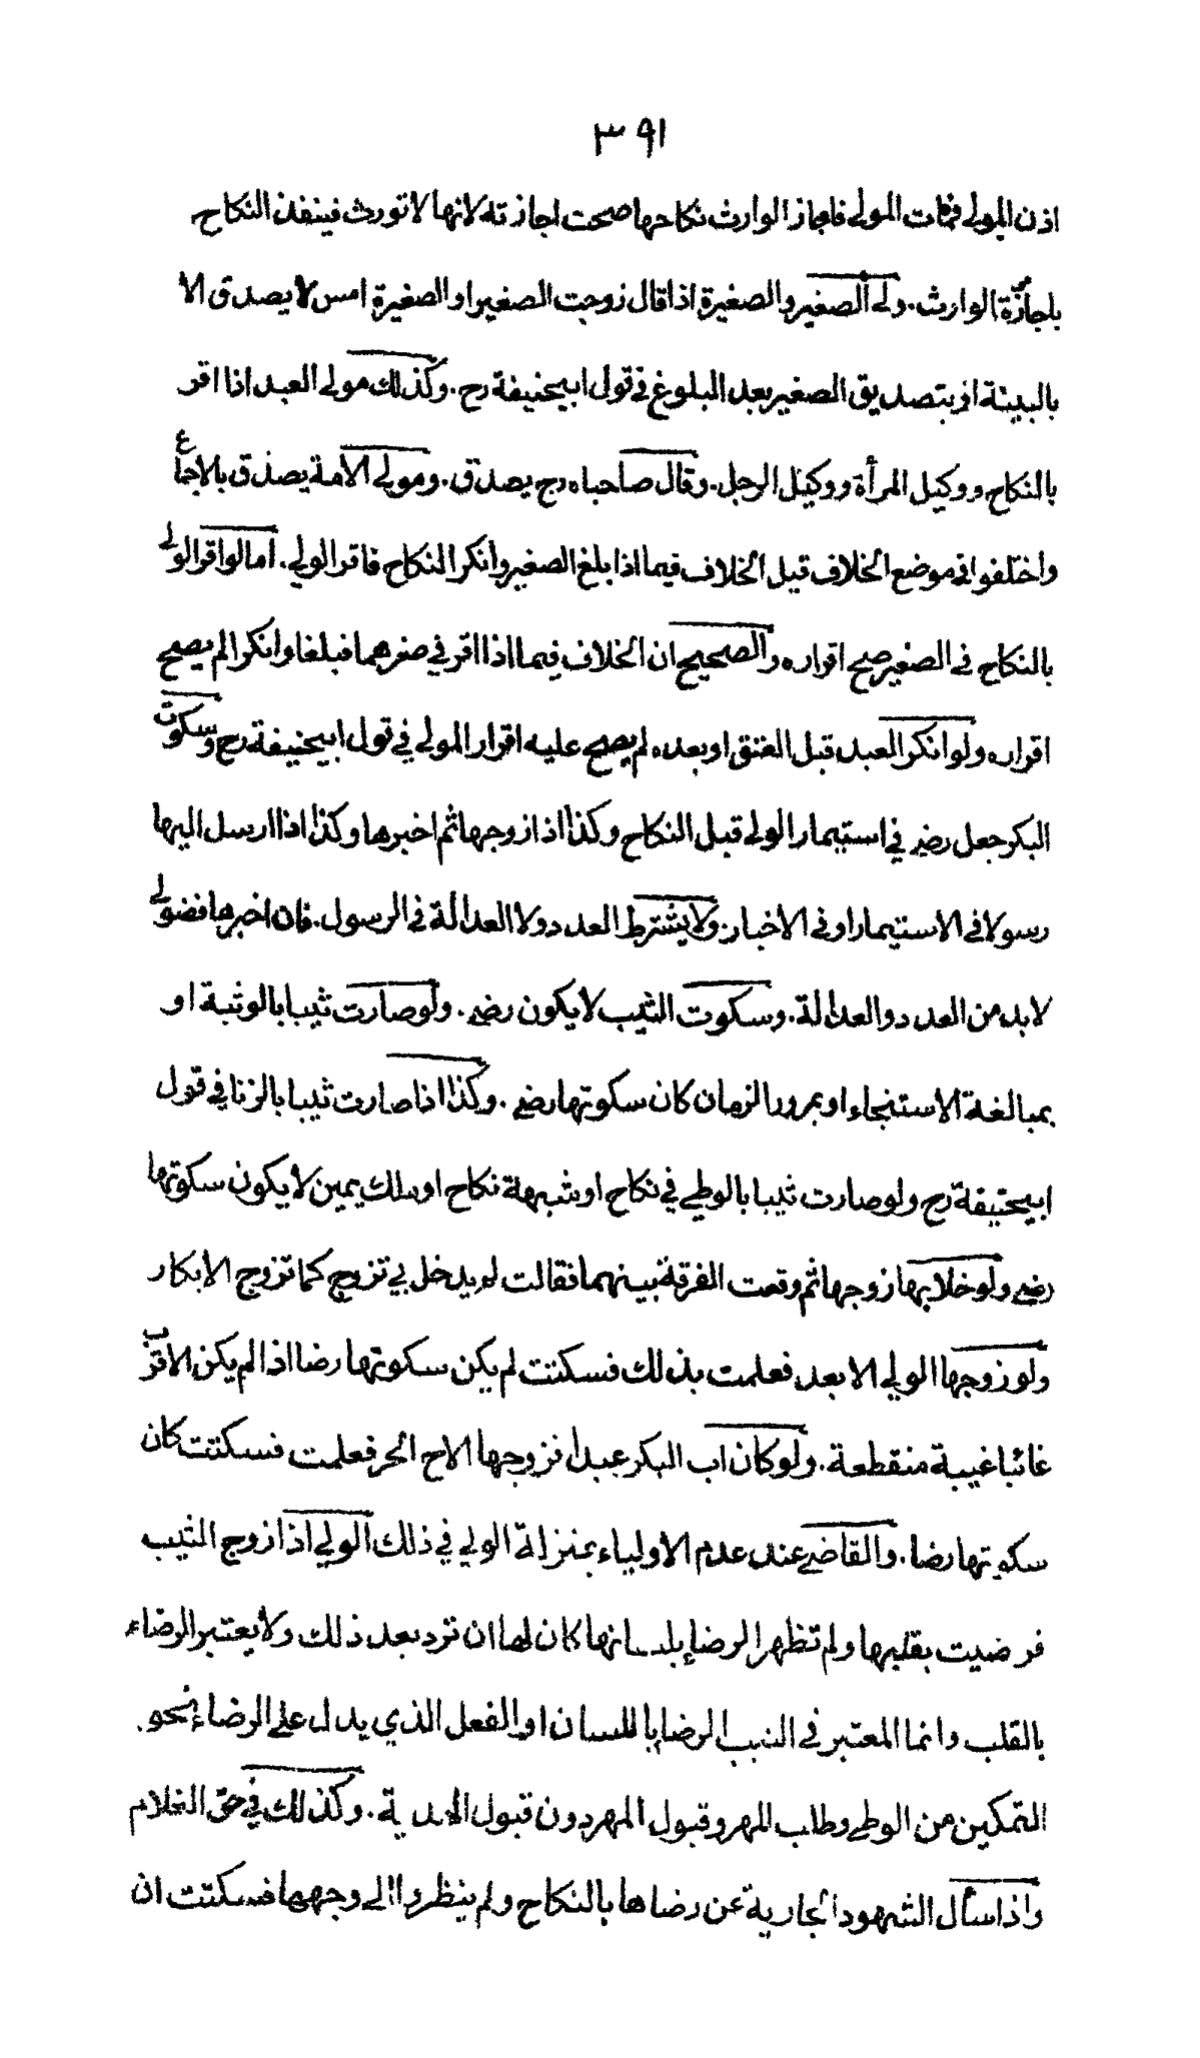 ٣٩١
اذن المولى فمات المولى فاجاز الوارث نكاحها صحت اجازته لانها لا تورث فينفذ النكاح
باجازة الوارث. ولي الصغير والصغيرة اذا قال زوجت الصغير او الصغيرة امس لا يصدق الا
بالبينة او بتصديق الصغير بعد البلوغ في قول ابيحنيفة رح. وكذلك مولى العبد اذا اقر
بالنكاح ووكيل المرأة ووكيل الرجل. وقال صاحباه رح يصدق. ومولى الامة يصدق بالاجماع
واختلفوا في موضع الخلاف قيل الخلاف فيما اذا بلغ الصغير وانكر النكاح فاقر الولي. اما لو اقر الولي
بالنكاح في الصغير صح اقراره والصحيح ان الخلاف فيما اذا اقر في صغرهما فبلغا وانكرا لم يصح
اقراره ولو انكر العبد قبل العتق او بعده لم يصح عليه اقرار المولى في قول ابيحنيفة رح وسكوت
البكر جعل رضى في استيمار الولي قبل النكاح وكذا اذا زوجها ثم اخبرها وكذا اذا ارسل اليها
رسولا في الاستيمار او في الاخبار. ولا يشترط العدد ولا العدالة في الرسول. فان اخبرها فضولي
لا بد من العدد والعدالة. وسكوت الثيب لا يكون رضى. ولو صارت ثيبا بالوثبة او
بمبالغة الاستنجاء او بمرور الزمان كان سكوتها رضى. وكذا اذا صارت ثيبا بالزنا في قول
ابيحنيفة رح ولو صارت ثيبا بالوطي في نكاح او شبهة نكاح او ملك يمين لا يكون سكوتها
رضى ولو خلا بها زوجها ثم وقعت الفرقة بينهما فقالت لم يدخل بي تزوج كما تزوج الابكار
ولو زوجها الولي الابعد فعلمت بذلك فسكتت لم يكن سكوتها رضا اذا لم يكن الاقرب
غائبا غيبة منقطعة. ولو كان اب البكر عبدا فزوجها الاخ الحر فعلمت فسكتت كان
سكوتها رضا. والقاضي عند عدم الاولياء بمنزلة الولي في ذلك الولي اذا زوج الثيب
فرضيت بقلبها ولم تظهر الرضا بلسانها كان لها ان ترد بعد ذلك ولا يعتبر الرضاء
بالقلب وانما المعتبر في الثيب الرضا باللسان او الفعل الذي يدل على الرضاء نحو
التمكين من الوطي وطلب المهر وقبول المهر دون قبول الهدية. وكذلك في حق الغلام
واذا سأل الشهود الجارية عن رضاها بالنكاح ولم ينظروا الى وجهها فسكتت ان